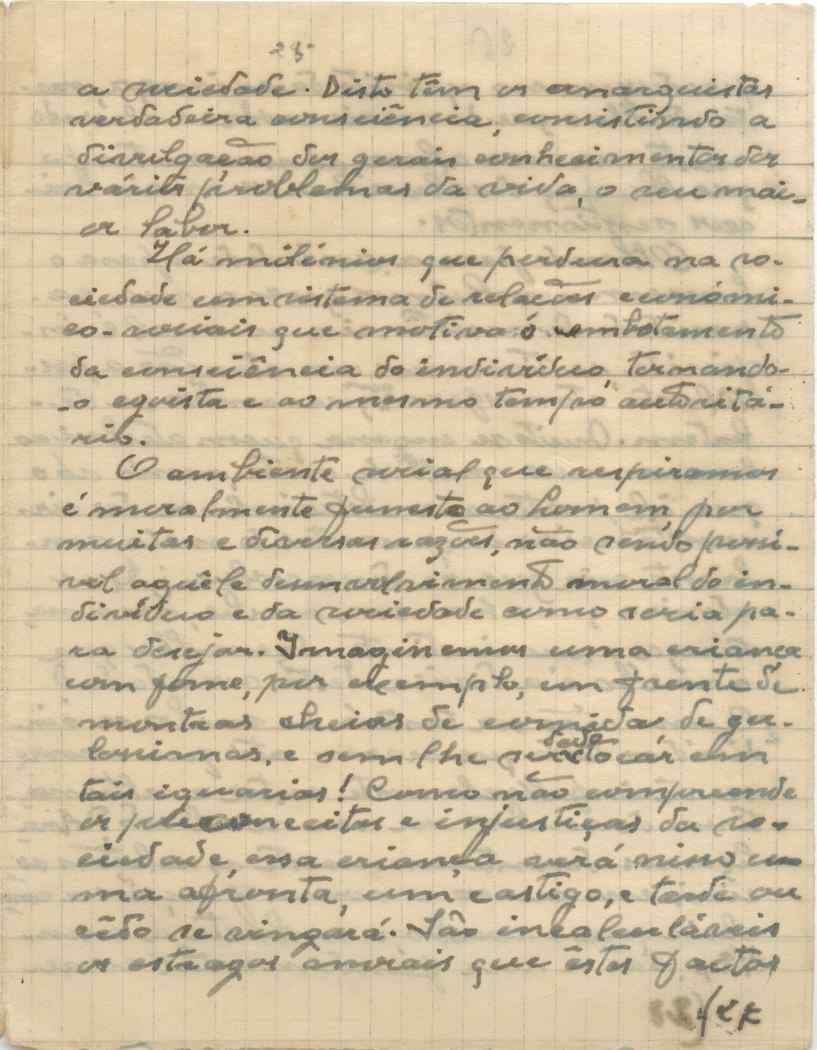 28
a sociedade. Disto têm os anarquistas
verdadeira consciência, consistindo a
divulgação dos gerais conhecimentos dos
vários problemas da vida, o seu mai-
or labor.
Há milénios que perdura na so-
ciedade um sistema de relações económi-
co-sociais que motiva o embotamento
da consciência do indivíduo tornando-
-o egoísta e ao mesmo tempo autoritá-
rio.
O ambiente social que respiramos
é moralmente funesto ao homem por
muitas e diversas razões, não sendo possi-
vel aquêle desenvolvimento moral do in-
divíduo e da sociedade como seria pa-
ra desejar. Imaginemos uma criança
com fome, por exemplo, em frente de
montras cheias de comida de gu-
loseimas, e sem lhe ser dado tocár em
tais iguarias! Como não compreende
os preconceitos e injustiças da so-
ciedade, essa criança verá nisso u-
ma afronta, um castigo, e tarde ou
cêdo se vingará. São incalculáveis
os estragos morais que êstes factos